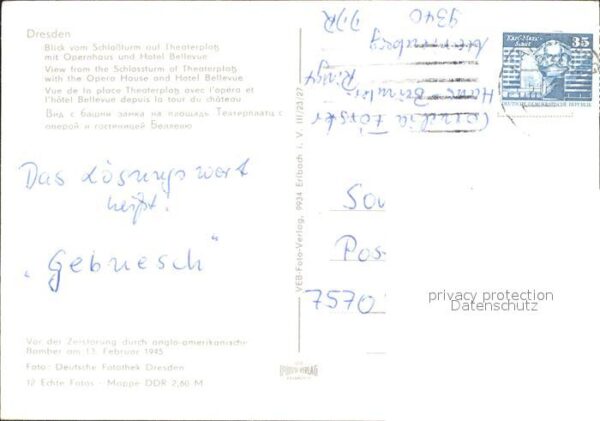 Dresden
Blick vom Schloßturm auf Theaterplatz
mit Opernhaus und Hotel Bellevue
View from the Schlossturm of Theaterplatz
with the Opera House and Hotel Bellevue
Vue de la place Theaterplatz avec l'opéra et
l'hôtel Bellevue depuis la tour du château
Вид с башни замка на площадь Театерплатц с
оперой и гостиницей Беллевю
Das Lösungswort
heißt:
"Gebruesch"
Vor der Zerstörung durch anglo-amerikanische
Bomber am 13. Februar 1945
Foto: Deutsche Fotothek Dresden
12 Echte Fotos - Mappe DDR 2,60 M
VEB-Foto-Verlag, 9934 Erlbach i. V. III/23/27
Förster
Ring
9340
DDR
Karl-Marx-
Stadt
35
DEUTSCHE DEMOKRATISCHE REPUBLIK
Pos
7570
privacy protection
Datenschutz